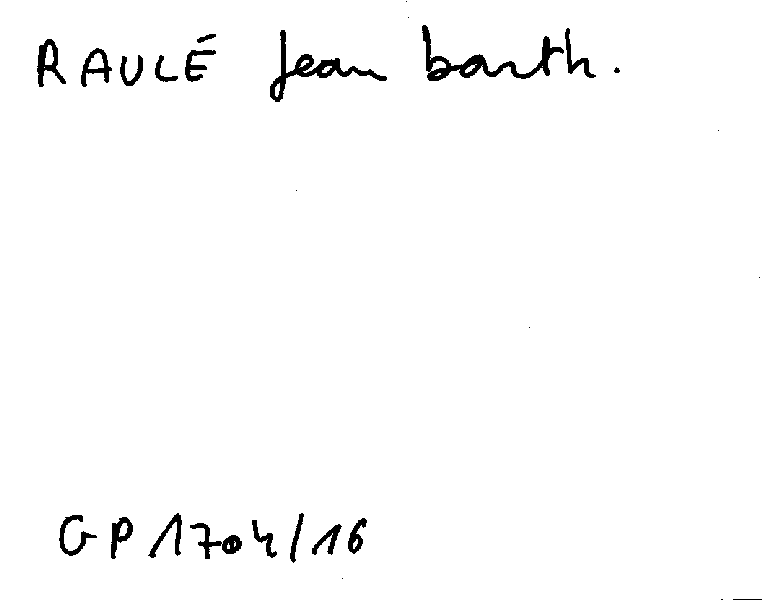 RAULÉ Jean barth.
GP 1704/16